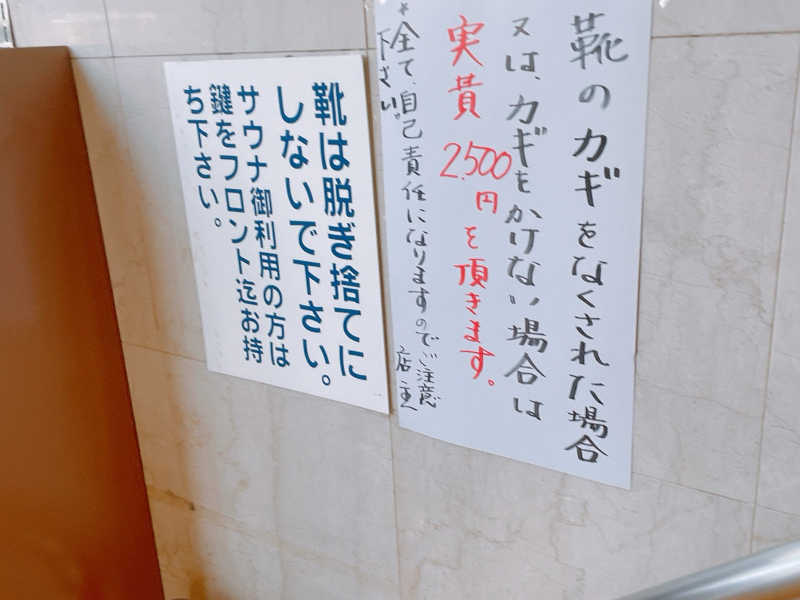 靴のカギをなくされた場合
又は、カギをかけない場合は
実費2,500円を頂きます。
*全て、自己責任になりますのでご注意
下さい。
店主
靴は脱ぎ捨てに
しないで下さい。
サウナ御利用の方は
鍵をフロント迄お持
ち下さい。